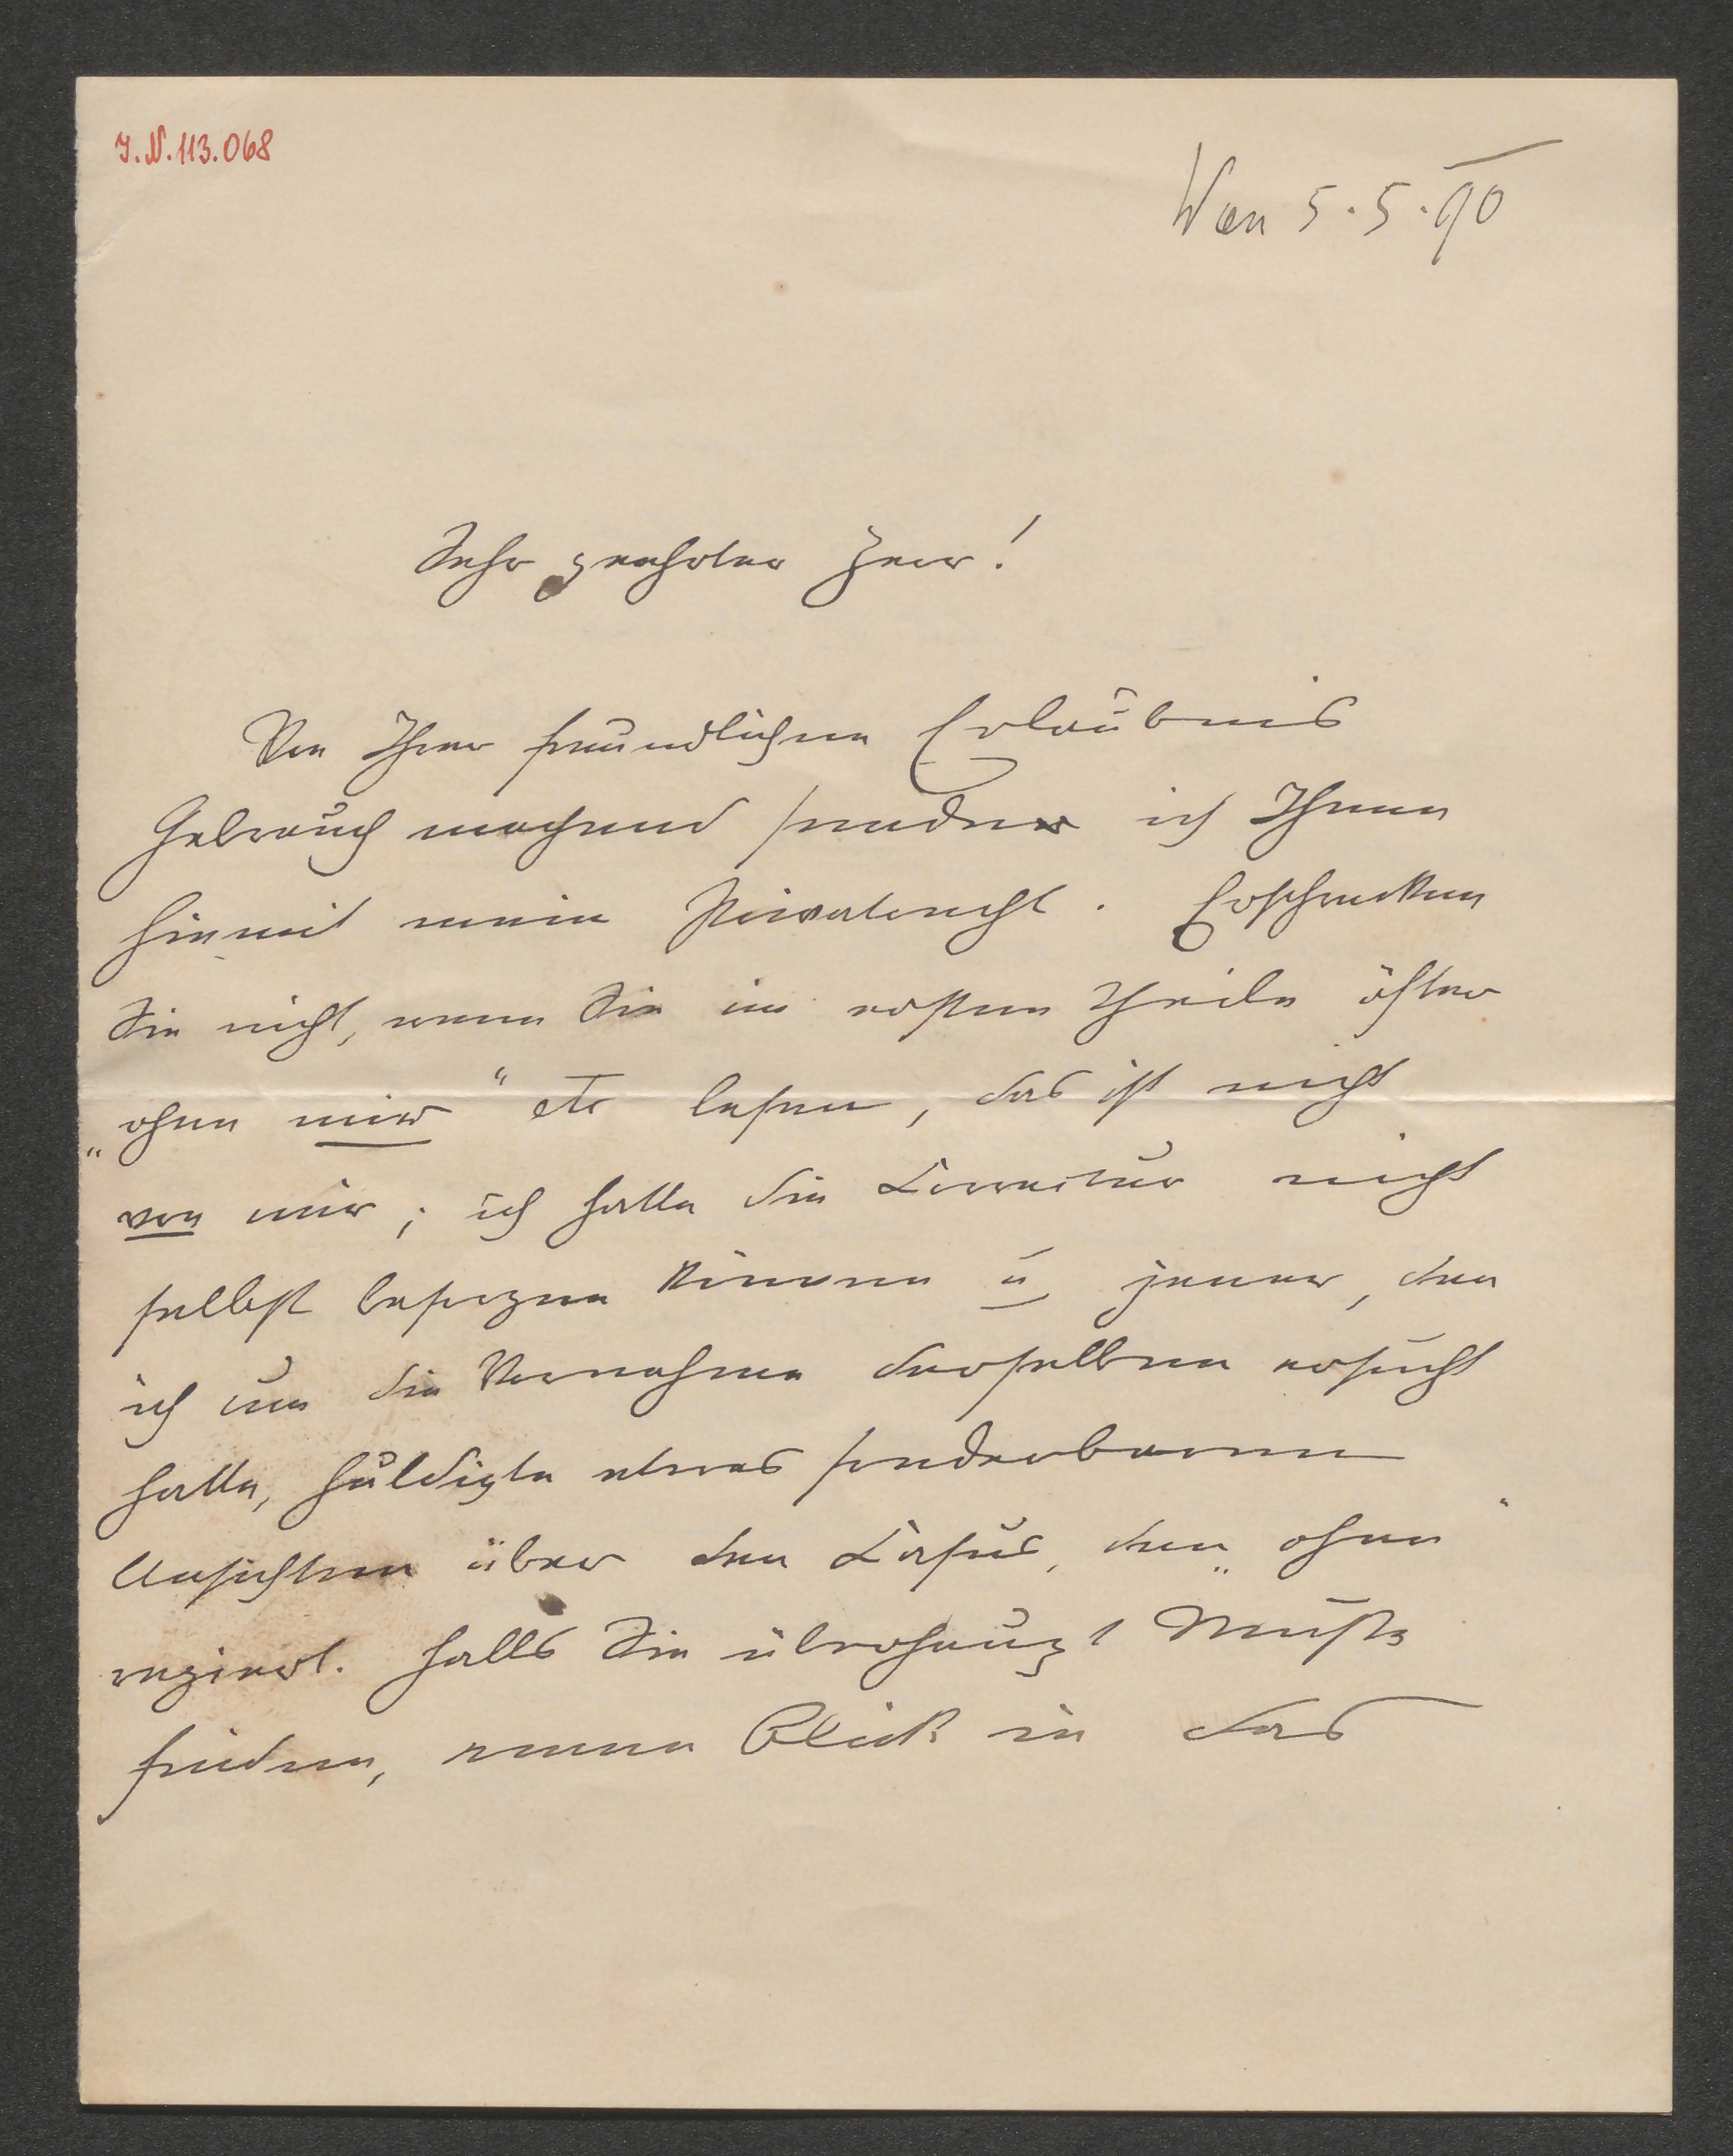 I.N. 113.068
Wien 5.5.90
Sehr geehrter Herr!
Von Ihrer freundlichen Erlaubnis
Gebrauch machend sende ich Ihnen
hiemit mein Privatrecht. Erschrecken
Sie nicht, wenn Sie im ersten Theile öfter
„ohne mir" etc lesen, das ist nicht
von mir; ich hatte die Correctur nicht
selbst besorgen können u jener, den
ich um die Vornahme derselben ersucht
hatte, huldigte etwas sonderbaren
Ansichten über den Casus, den „ohne"
regiert. Falls Sie überhaupt Muße
finden, einen Blick in das